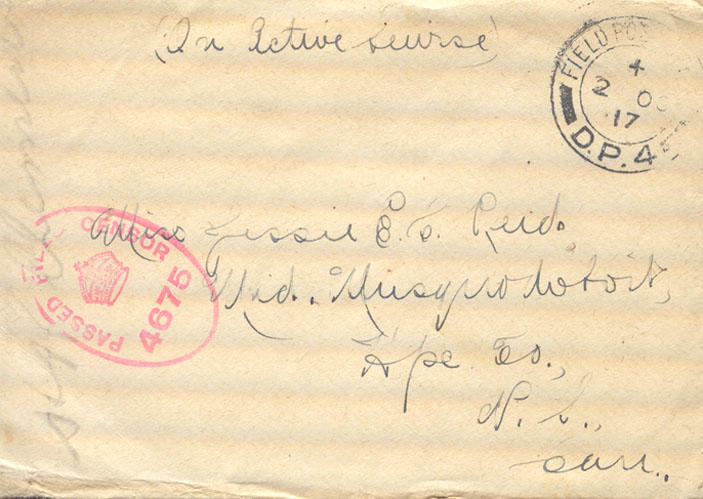 (On Active Servise)
FIELD POST
4
2 OC
17
D.P.4
PASSED FIELD CENSOR
4675
Miss Jessie E. S. Reid.
Mid. Musquodoboit,
Hfx. Co.,
N. S.,
Can.,